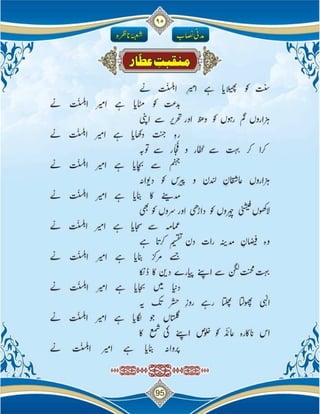 مدنی نصاب
۹۵
شعبۂ ناظرہ
منقبتِ عطّار
سنت کو پھیلایا ہے امیر اہلسنّت نے
بدعت کو مٹایا ہے امیر اہلسنّت نے
ہزاروں گم رہوں کو وعظ اور تحریر سے اپنی
رہِ جنت دکھایا ہے امیر اہلسنّت نے
کرا کر بہت سے کفار و فجار سے توبہ
جہنم سے بچایا ہے امیر اہلسنّت نے
ہزاروں عاشقانِ لندن و پیرس کو دیوانہ
مدینے کا بنایا ہے امیر اہلسنّت نے
لاکھوں فیشنی چہروں کو داڑھی اور سروں کو بھی
عمامہ سے سجایا ہے امیر اہلسنّت نے
وہ فیضانِ مدینہ رات دن تقسیم کرتا ہے
جسے مرکز بنایا ہے امیر اہلسنّت نے
بہت محنت لگن سے اپنے پیارے دین کا ڈنکا
دنیا میں بجایا ہے امیر اہلسنّت نے
الٰہی پھولتا پھلتا رہے روزِ حشر تک یہ
گلستاں جو لگایا ہے امیر اہلسنّت نے
اس ناکارہ عائذ کو خلوص اپنے کی شمع کا
پروانہ بنایا ہے امیر اہلسنّت نے
95